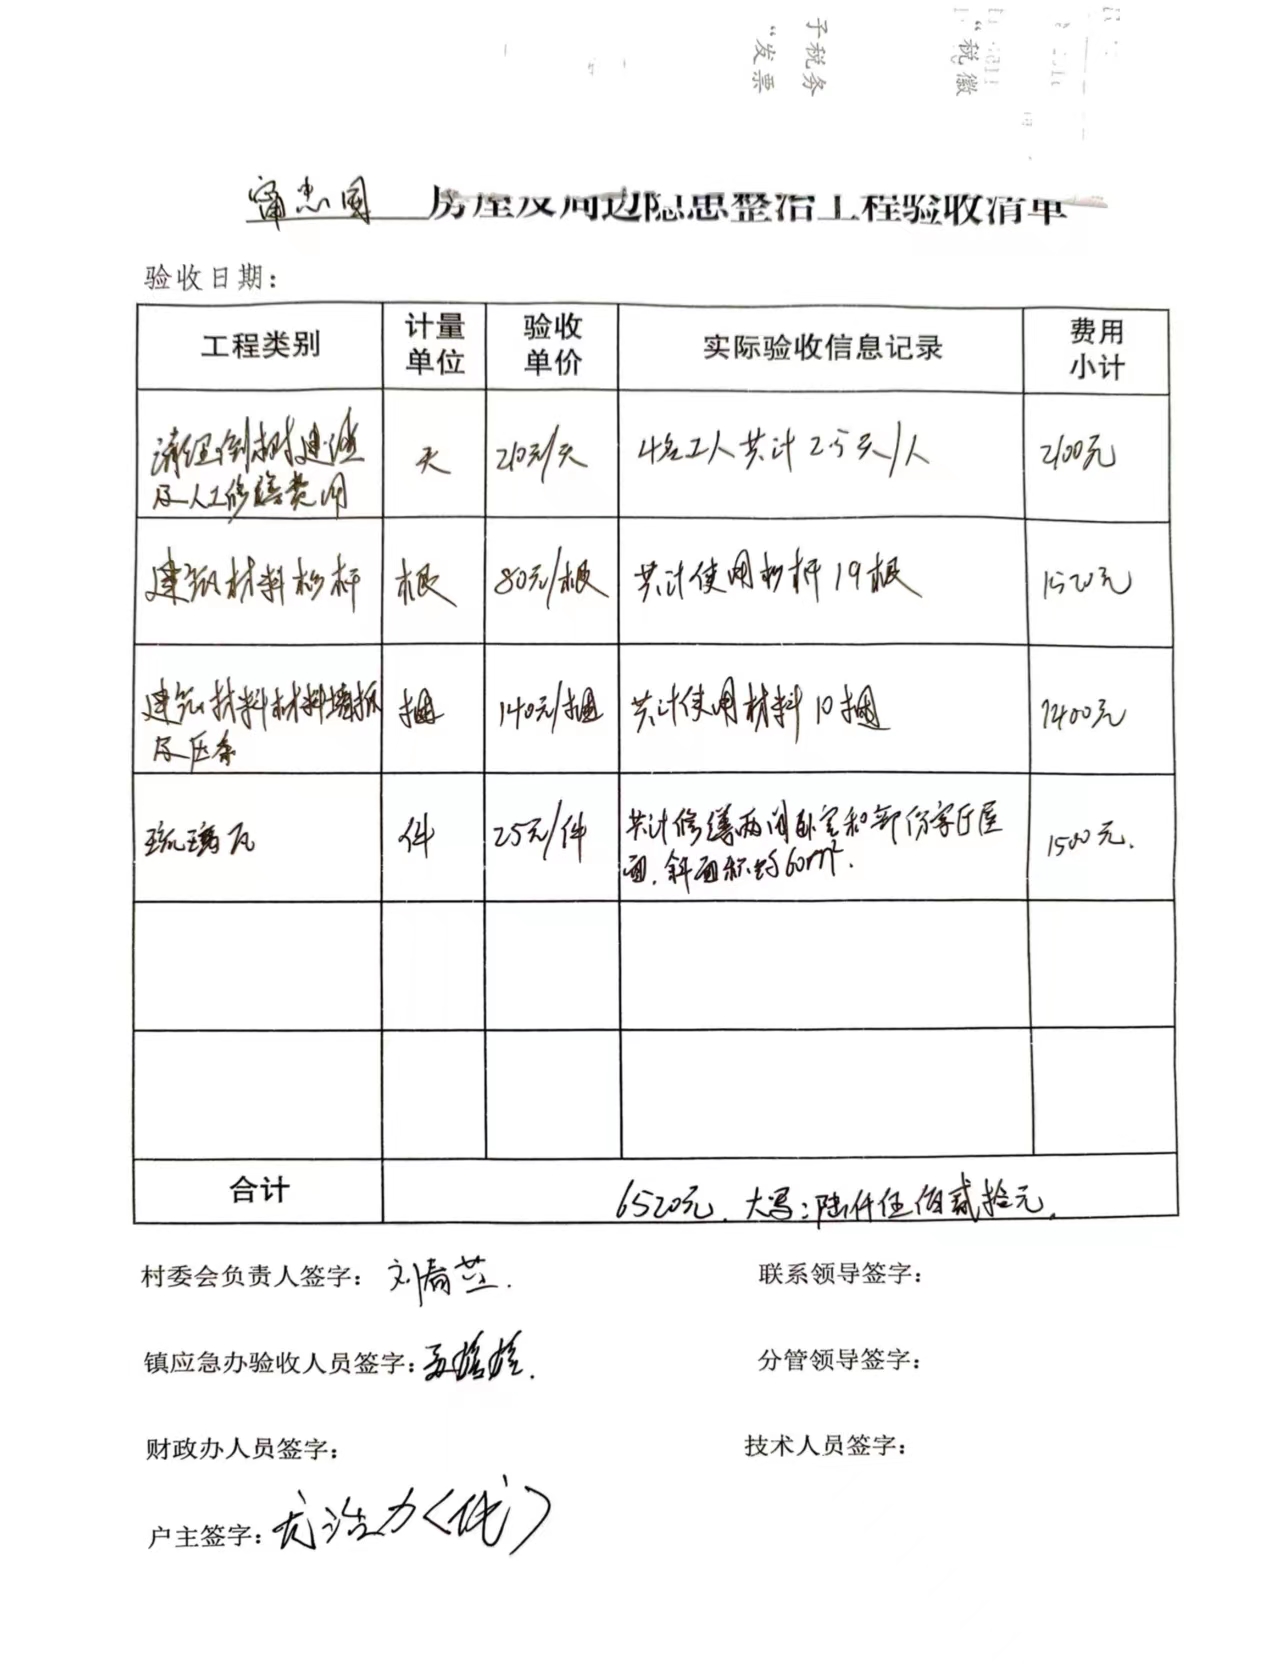 子税务
“发票
“税徽
甯忠国 房屋及周边隐患整治工程验收清单
验收日期：
工程类别 计量单位 验收单价 实际验收信息记录 费用小计
清理倒树建渣
及人工修缮费用 天 210元/天 4名工人共计2.5天/人 2100元
建筑材料杉杆 根 80元/根 共计使用杉杆19根 1520元
建筑材料材料墙板
及压条 捆 140元/捆 共计使用材料10捆 1400元
琉璃瓦 件 25元/件 共计修缮两间卧室和部份客厅屋
面，斜面积约60m². 1500元.
合计 6520元. 大写：陆仟伍佰贰拾元.
村委会负责人签字： 联系领导签字：
镇应急办验收人员签字： 分管领导签字：
财政办人员签字： 技术人员签字：
户主签字： 浩力（代）